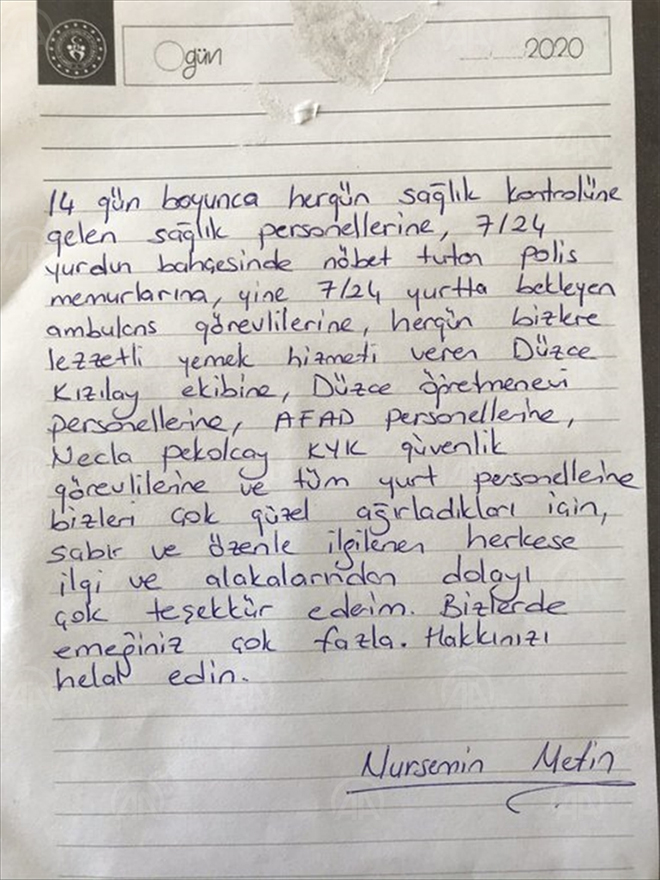 Ogün 2020
14 gün boyunca hergün sağlık kontrolüne
gelen sağlık personellerine, 7/24
yurdun bahçesinde nöbet tutan polis
memurlarına, yine 7/24 yurtta bekleyen
ambulans görevlilerine, hergün bizlere
lezzetli yemek hizmeti veren Düzce
Kızılay ekibine, Düzce öğretmenevi
personellerine, AFAD personellerine,
Necla pekolcay KYK güvenlik
görevlilerine ve tüm yurt personellerine
bizleri çok güzel ağırladıkları için,
sabır ve özenle ilgilenen herkese
ilgi ve alakalarından dolayı
çok teşekkür ederim. Bizlerde
emeğiniz çok fazla. Hakkınızı
helal edin.
Nursemin Metin